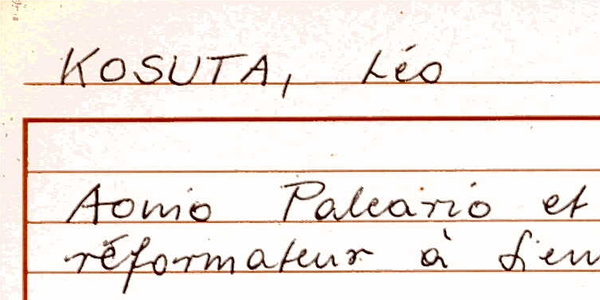 KOSUTA, Léo
Aonio Paleario et
réformateur à Sien